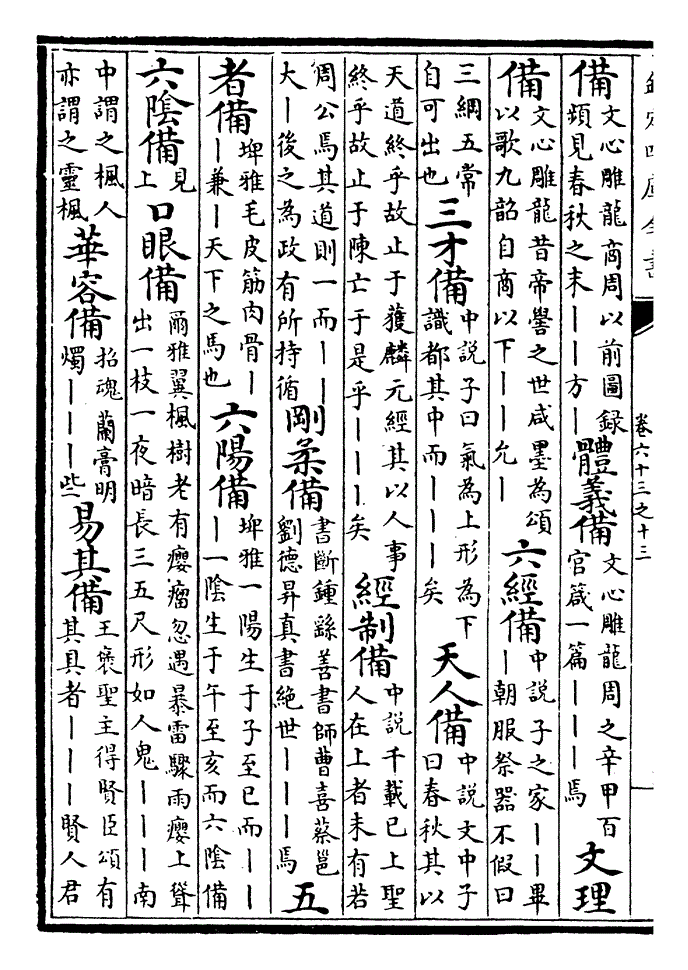 卷六十三之十三
備文心雕龍商周以前圖錄
頻見春秋之末——方—體義備文心雕龍周之辛甲百
官箴一篇———焉文理
備文心雕龍昔帝嚳之世咸墨為頌
以歌九韶自商以下——允—六經備中説子之家——畢
—朝服祭器不假曰
三綱五常
自可出也三才備中説子曰氣為上形為下
識都其中而———矣天人備中説文中子
曰春秋其以
天道終乎故止于獲麟元經其以人事
終乎故止于陳亡于是乎———矣經制備中説千載已上聖
人在上者未有若
周公焉其道則一而——
大—後之為政有所持循剛柔備書斷鍾繇善書師曹喜蔡邕
劉德昇真書絶世———焉五
者備埤雅毛皮筋肉骨—
—兼—天下之馬也六陽備埤雅一陽生于子至巳而——
—一陰生于午至亥而六陰備
六陰備見
上口眼備爾雅翼楓樹老有癭瘤忽遇暴雷驟雨癭上聳
出一枝一夜暗長三五尺形如人鬼———南
中謂之楓人
亦謂之靈楓華容備招魂蘭膏明
燭———些易其備王褒聖主得賢臣頌有
其具者———賢人君